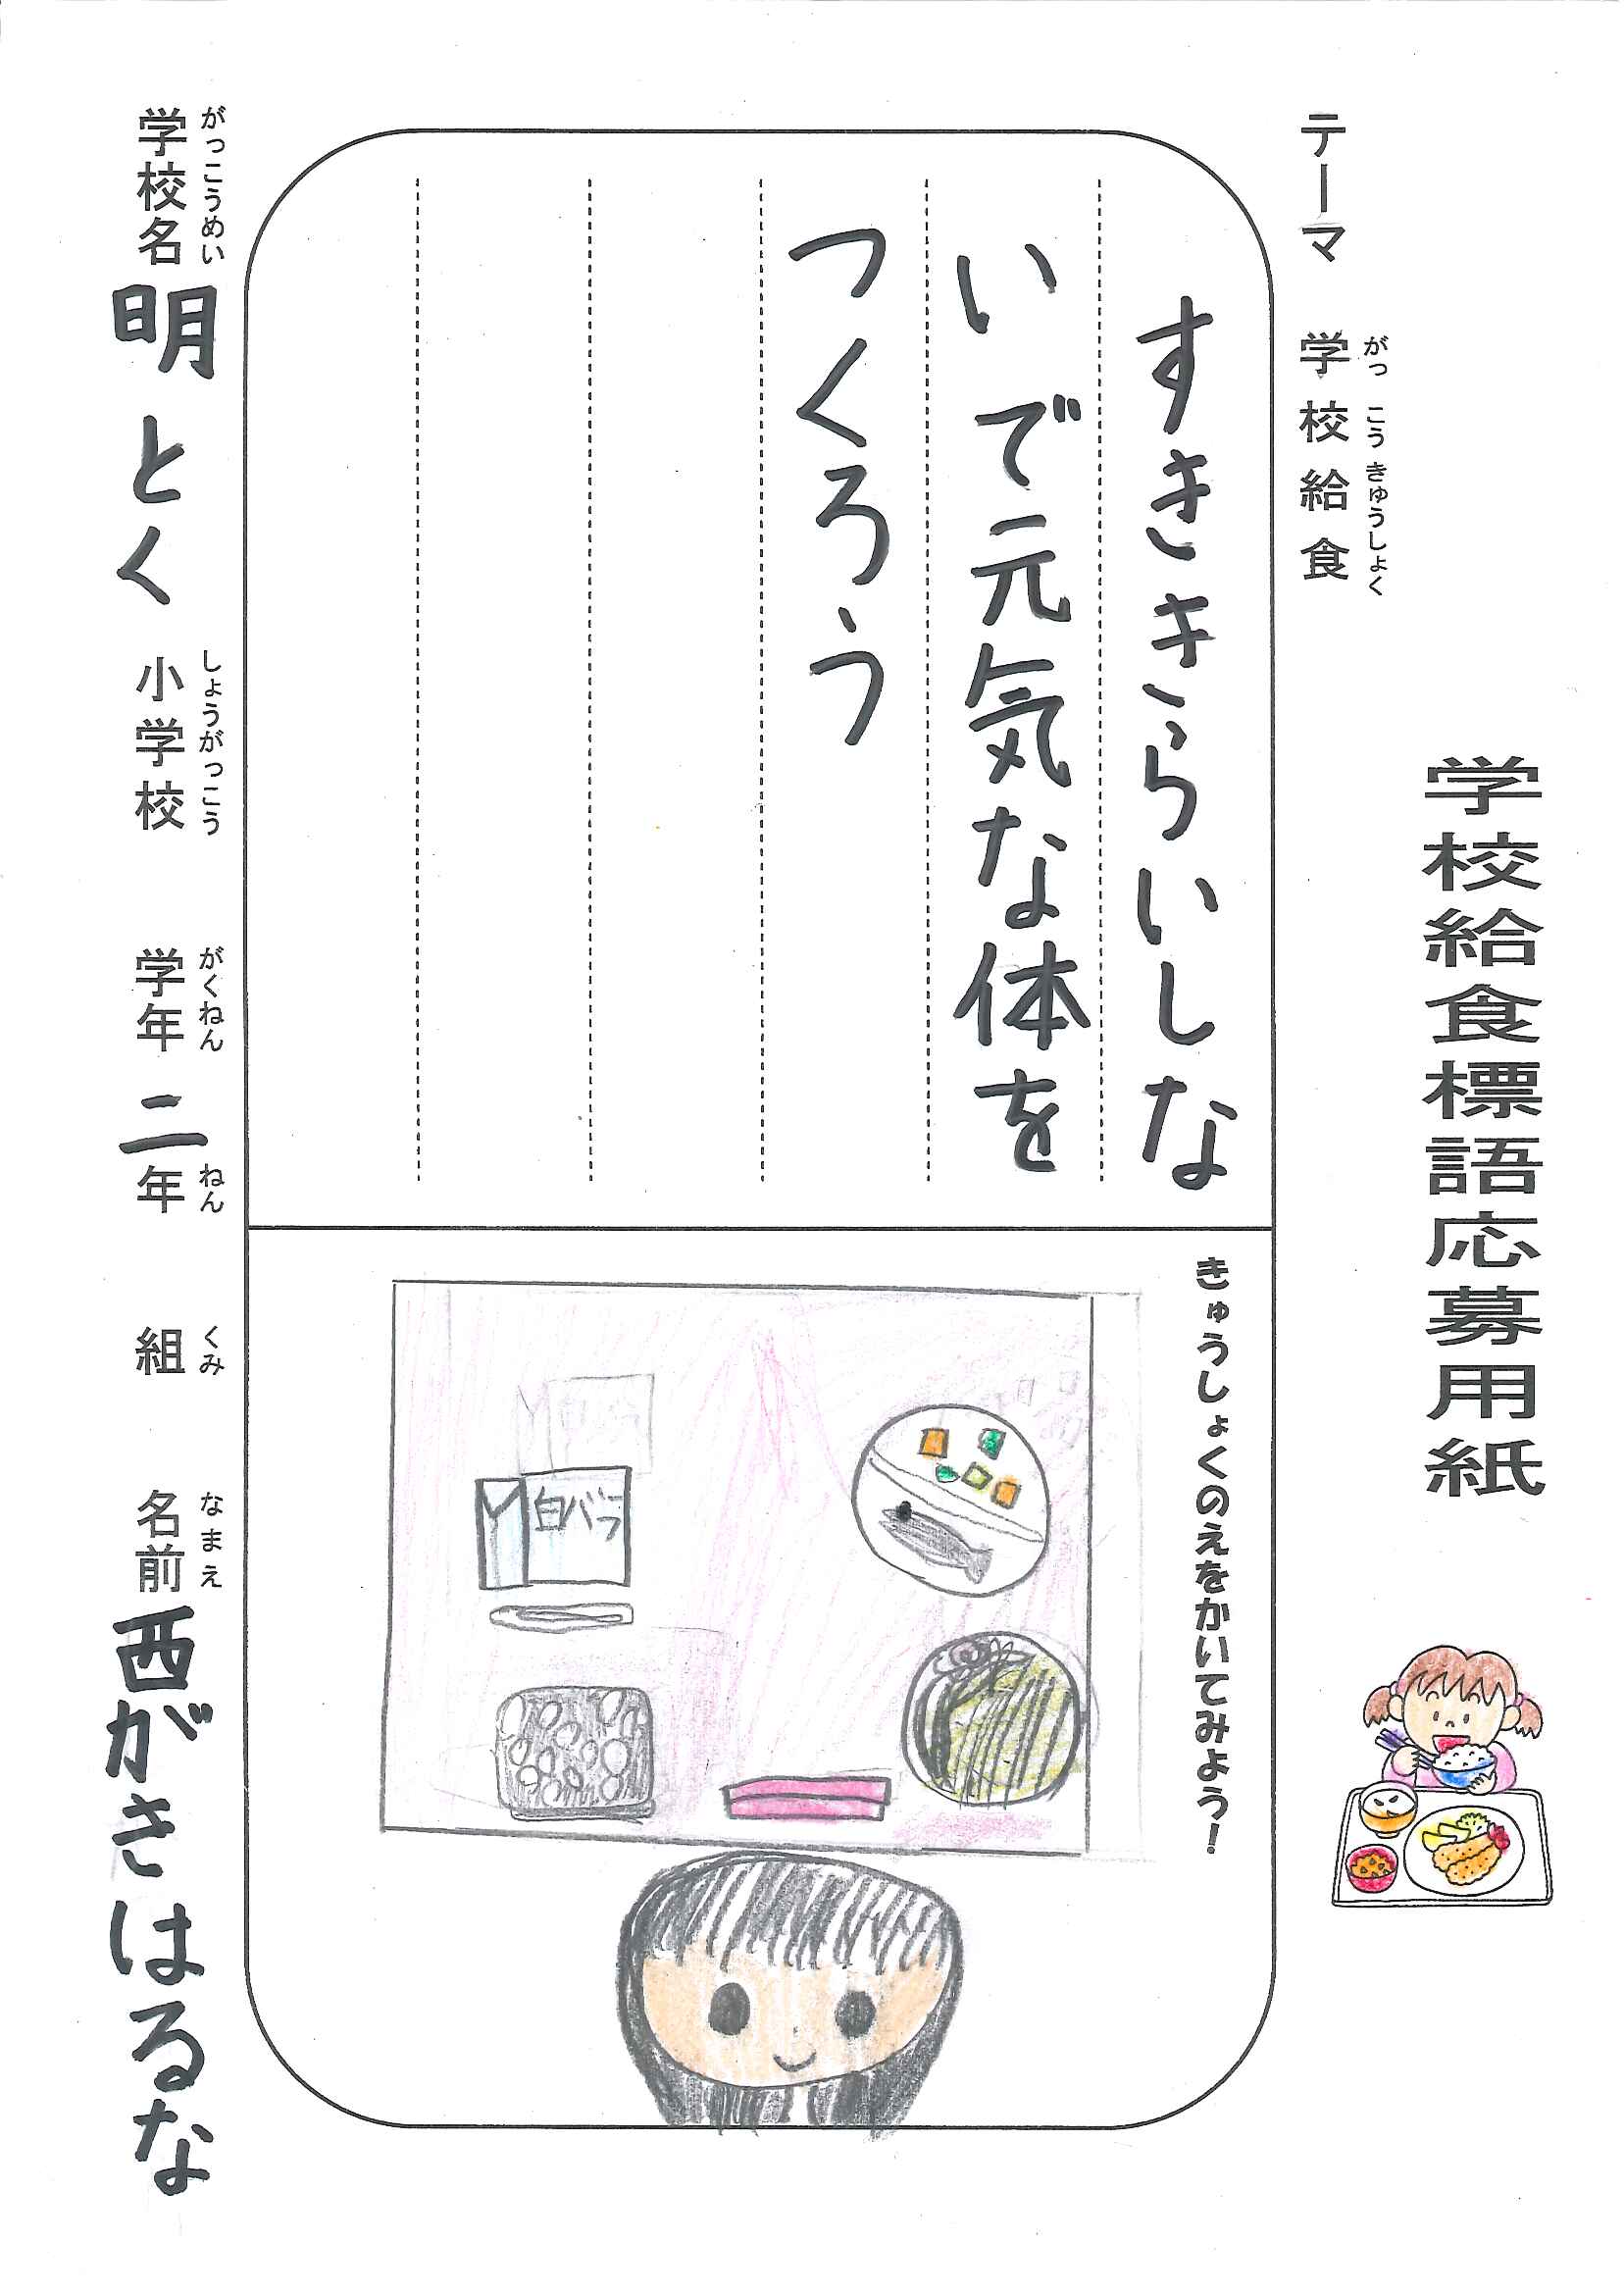 学校給食標語応募用紙
テーマ 学校給食
がっこうきゅうしょく
すききらいしな
いで元気な体を
つくろう
きゅうしょくのえをかいてみよう!
白バラ
がっこうめい しょうがっこう がくねん ねん くみ なまえ
学校名 明とく 小学校 学年 二年 組 名前 西がきはるな